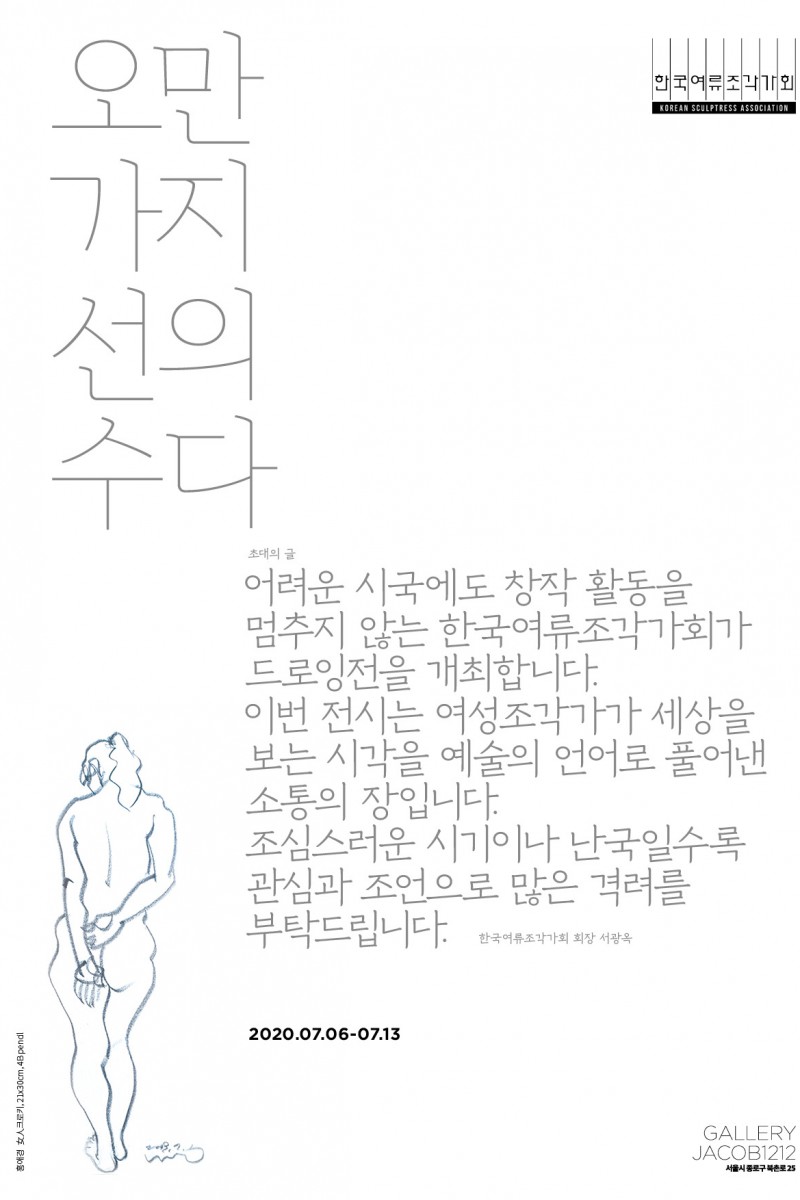 오만
가지
선의
수다
한국여류조각가회
KOREAN SCULPTRESS ASSOCIATION
초대의 글
어려운 시국에도 창작 활동을
멈추지 않는 한국여류조각가회가
드로잉전을 개최합니다.
이번 전시는 여성조각가가 세상을
보는 시각을 예술의 언어로 풀어낸
소통의 장입니다.
조심스러운 시기이나 난국일수록
관심과 조언으로 많은 격려를
부탁드립니다.
한국여류조각가회 회장 서광옥
2020.07.06-07.13
홍애경 女人크로키, 21x30cm, 4B pencil
GALLERY
JACOB1212
서울시 종로구 북촌로 25